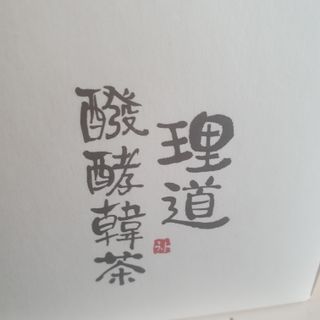 理道
醱酵韓茶